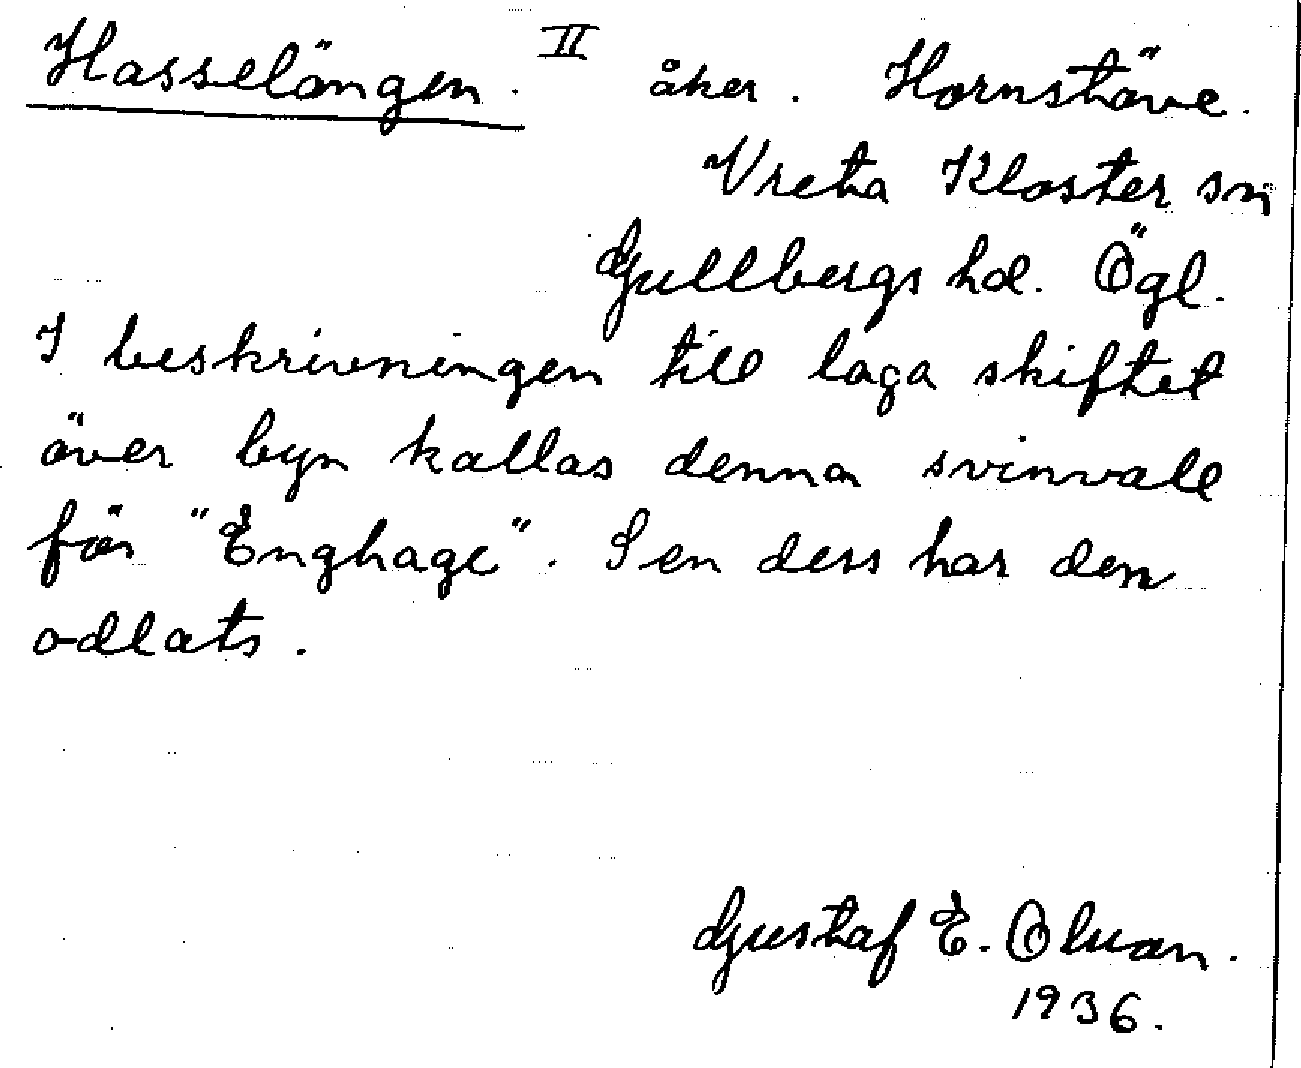 Hasselängen. II åker. Hornstäve.
Vreta Kloster sn
Gullbergs hd. Ögl.
I beskrivningen till laga skiftet
över byn kallas denna svinvall
för "Enghage". Sen dess har den
odlats.
Gustaf E. Olson.
1936.